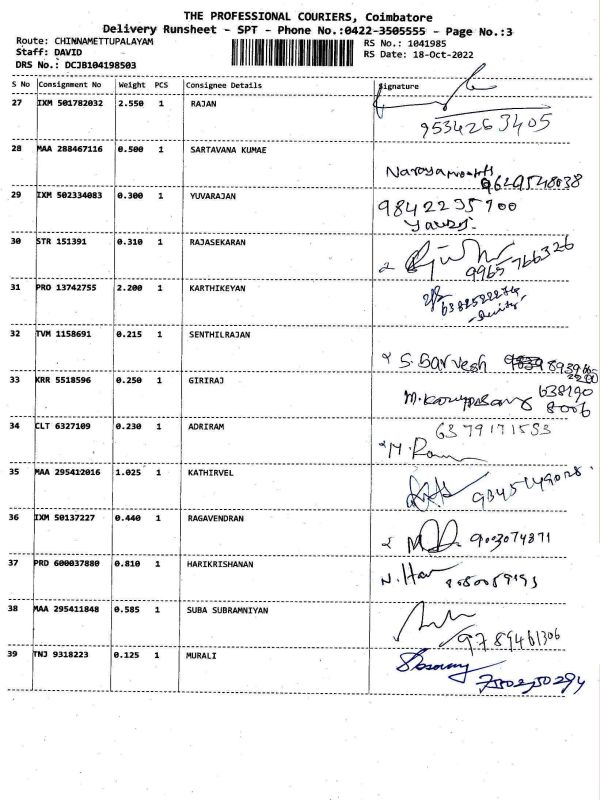 THE PROFESSIONAL COURIERS, Coimbatore
Delivery Runsheet - SPT - Phone No.:0422-3505555 - Page No.:3
Route: CHINNAMETTUPALAYAM
Staff: DAVID
DRS No.: DCJB104198503
RS No.: 1041985
RS Date: 18-Oct-2022
S No Consignment No Weight PCS Consignee Details Signature
27 IXM 501782032 2.550 1 RAJAN
9534263405
28 MAA 288467116 0.500 1 SARTAVANA KUMAE
9629548038
29 IXM 502334083 0.300 1 YUVARAJAN
9842235700
30 STR 151391 0.310 1 RAJASEKARAN
9965766326
31 PRO 13742755 2.200 1 KARTHIKEYAN
32 TVM 1158691 0.215 1 SENTHILRAJAN
S. Sarvesh
33 KRR 5518596 0.250 1 GIRIRAJ
638190
8006
34 CLT 6327109 0.230 1 ADRIRAM
6379171553
M. Ram
35 MAA 295412016 1.025 1 KATHIRVEL
36 IXM 50137227 0.440 1 RAGAVENDRAN
9003074871
37 PRD 600037880 0.810 1 HARIKRISHANAN
N. Hari
38 MAA 295411848 0.585 1 SUBA SUBRAMNIYAN
9789461306
39 TNJ 9318223 0.125 1 MURALI
7502750294